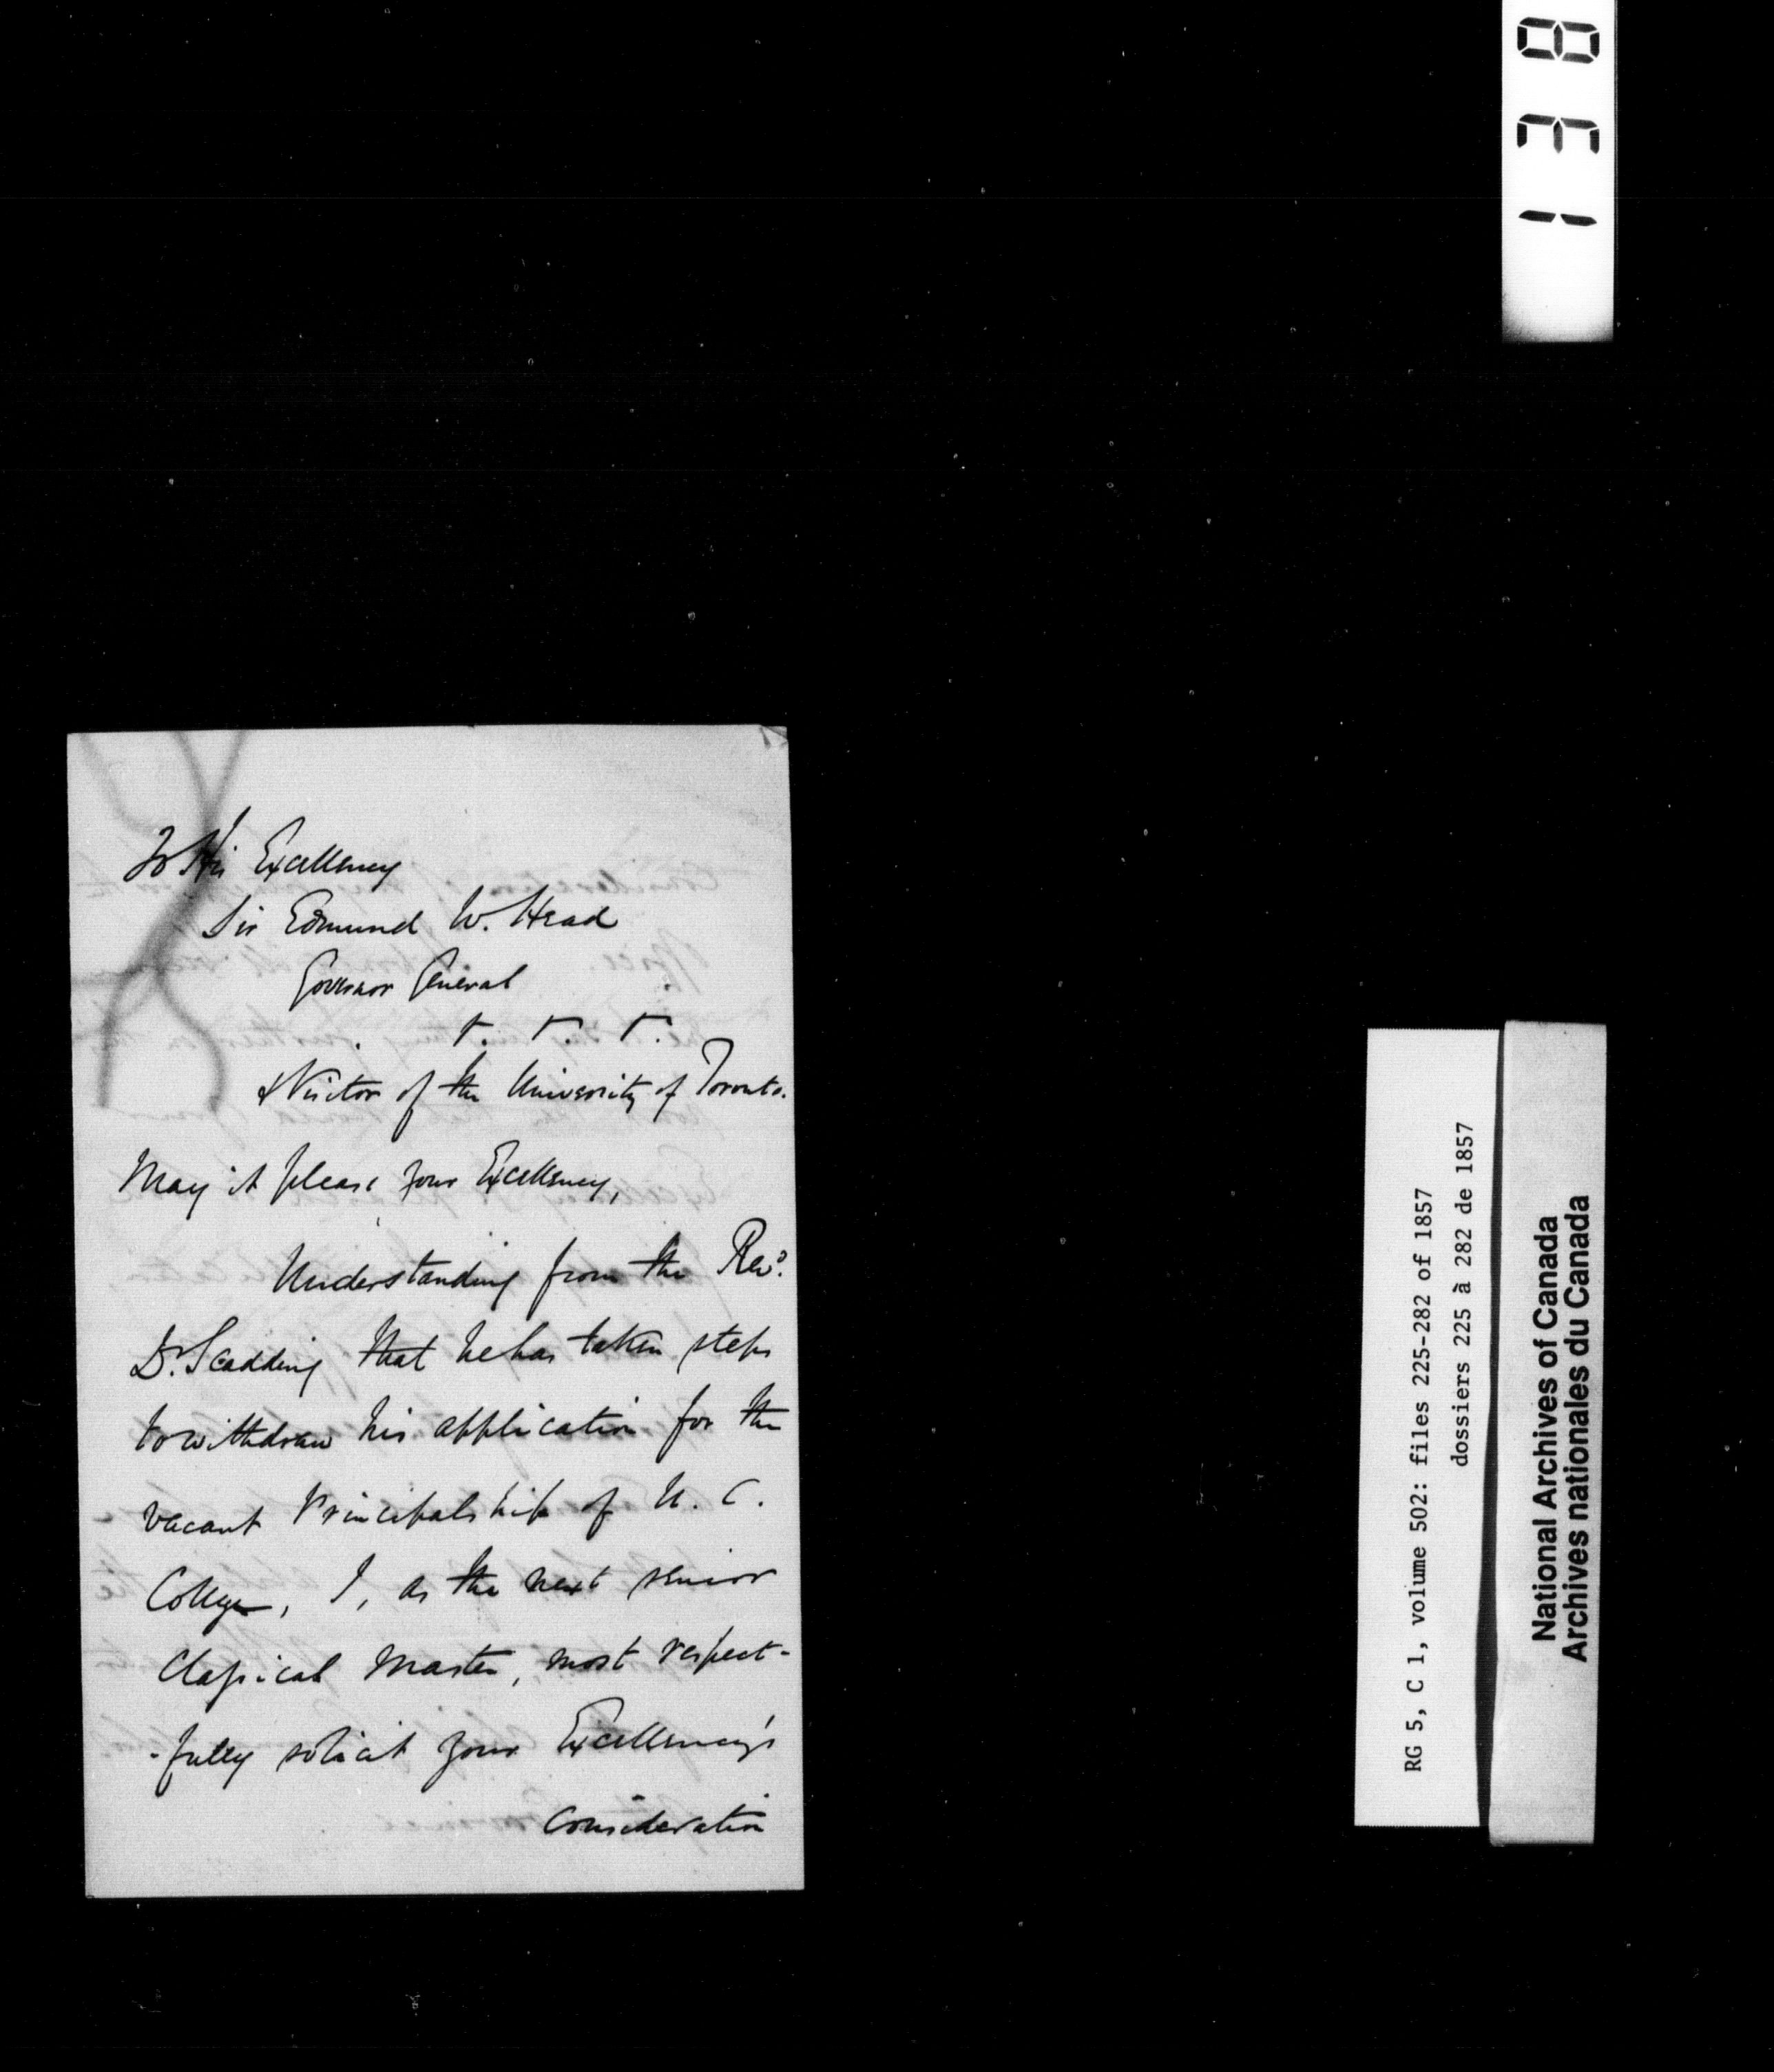 138
To His Excellency
Sir Edmund W. Head
Governor General
&. &. &.
& Visitor of the University of Toronto.
May it please your Excellency,
Understanding from the Revd.
Dr. Scadding that he has taken steps
to withdraw his application for the
vacant Principalship of U. C.
College, I, as the next senior
Classical Master, most respect-
-fully solicit your Excellency's
consideration
RG 5, C 1, volume 502: files 225-282 of 1857
dossiers 225 à 282 de 1857
National Archives of Canada
Archives nationales du Canada